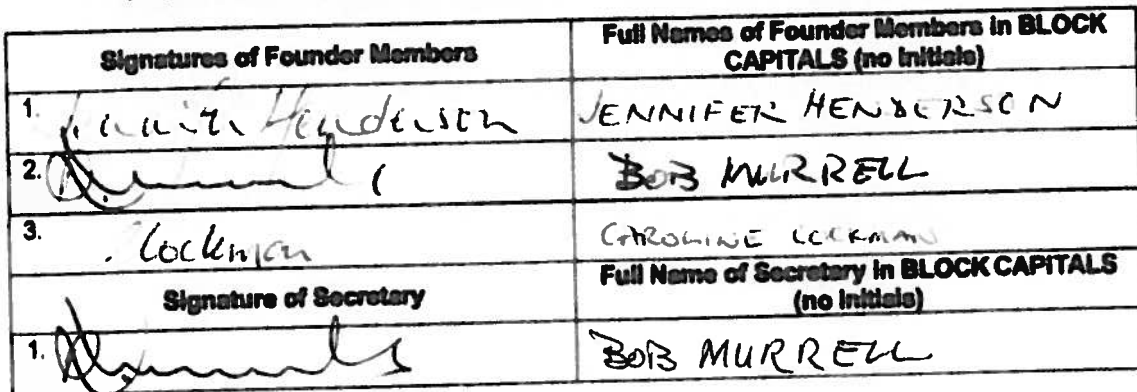 Signatures of Founder Members
Full Names of Founder Members in BLOCK
CAPITALS (no initials)
1. Jennifer Henderson
JENNIFER HENDERSON
2.
BOB MURRELL
3. Lockman
CAROLINE LOCKMAN
Signature of Secretary
Full Name of Secretary in BLOCK CAPITALS
(no initials)
1.
BOB MURRELL